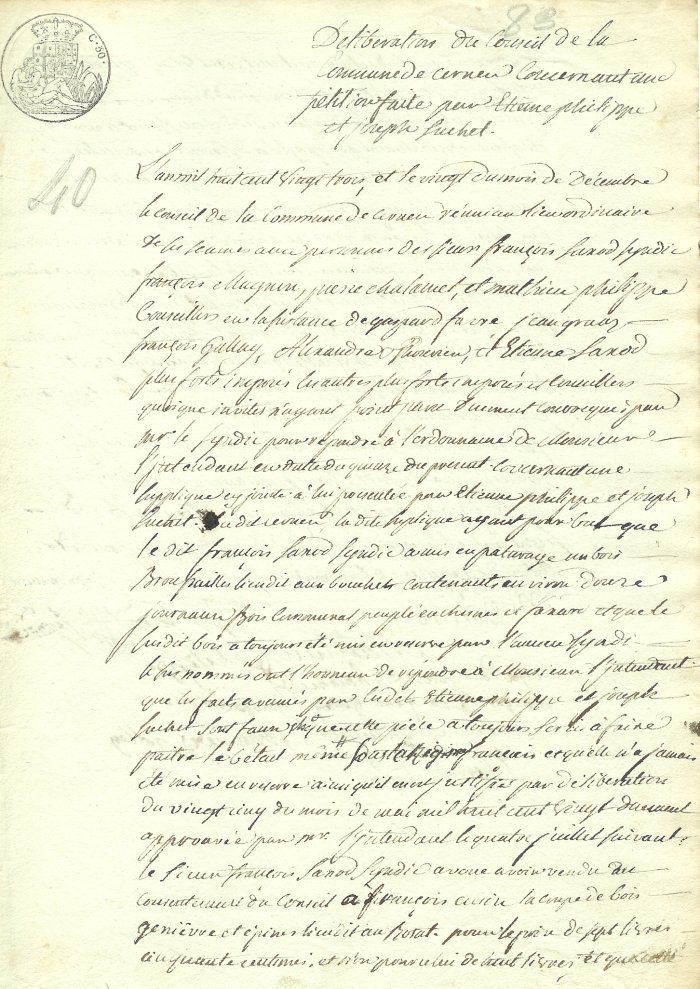 83
C. 50
Deliberation du Conseil de la
Commune de Cerneu Concernant une
pétition faite par Etiene philippe
et joseph Suchet.
40
L'an mil huit cent vingt trois, et le vingt du mois de Décembre
le conseil de la Commune de Cerneu réuni au lieu ordinaire
de ses séances aux personnes des sieur françois Sanod syndic
françois Magnin, pierre chalamel, et mathieu philippe
Conseillers en l'assistance de gaspard favre jean
françois Gallay, Alexandre et Etiene Sanod
plus forts imposés les autres plus forts imposés et Conseillers
quoique invités n'ayant point paru duement Convoqués par
le Syndic pour répondre à l'ordonnance de Monsieur
l'jntendant en date du quinze du présent Concernant une
supplique cy jointe à lui présentée par Etienne philippe et joseph
Suchet. dudit Cerneu la dite supplique ayant pour but que
le dit françois Sanod Syndic a mis en paturage un bois
Broussailles lieudit aux bouchets contenants environ douze
journaux Bois Communal peuplé en chesnes et et que le
susdit bois a toujours été mis en reserve par l'ancien Syndic
le sus nommés ont l'honneur de répondre à Monsieur l'jntendant
que les faits avancés par lesdits Etienne philippe et joseph
Suchet sont faux que cette pièce a toujours servi à faire
paitre le bétail même français et qu'elle n'a jamais
été mise en reserve ainsi qu'il est justifié par déliberation
du vingt cinq du mois de mai mil huit cent vingt duement
approuvée par mr l'jntendant le quatre juillet suivant.
le Sieur françois Sanod Syndic avoue avoir vendu du
Consentement du Conseil à françois la coupe de bois
genièvre et épines lieudit au pour le prix de sept livres
cinquante centimes, et non pour celui de huit livres, et que